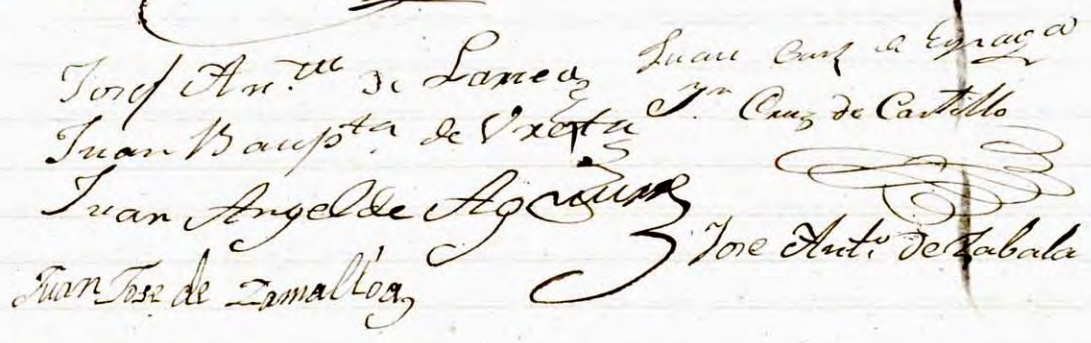 Josef An.^te de Larrea
Juan Baup^ta. de Vreta
Juan Angel de Aguirre
Juan Jose de Zamalloa
Juan Cruz de
J.^n Cruz de Castillo
Jose Ant.^o de Zabala